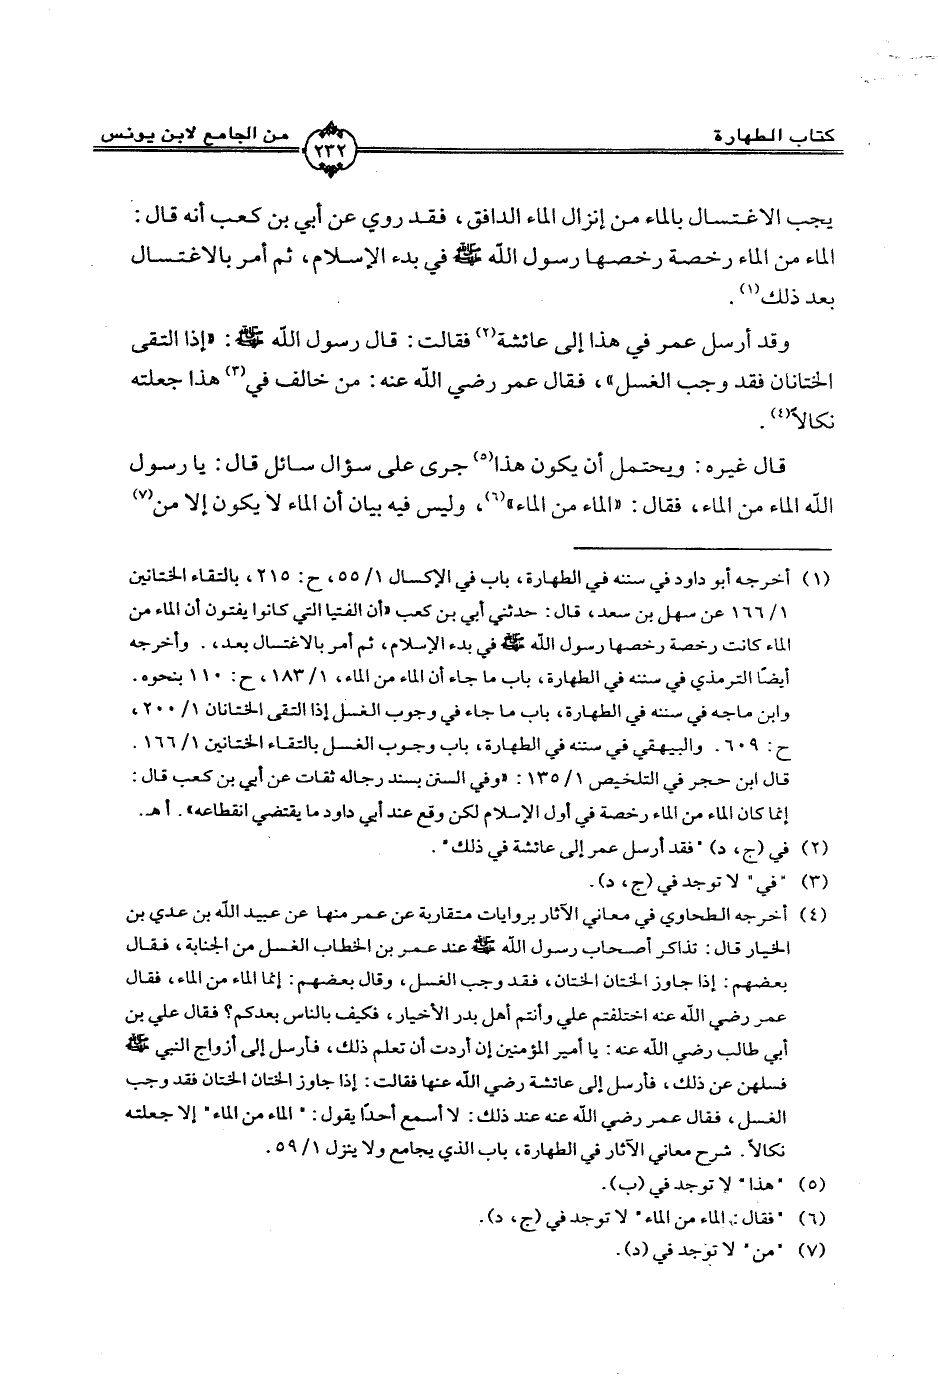 كتاب الطهارة
٢٣٢
من الجامع لابن يونس
يجب الاغتسال بالماء من إنزال الماء الدافق، فقد روي عن أبي بن كعب أنه قال:
الماء من الماء رخصة رخصها رسول الله ﷺ في بدء الإسلام، ثم أمر بالاغتسال
بعد ذلك(١).
وقد أرسل عمر في هذا إلى عائشة(٢) فقالت: قال رسول الله ﷺ: «إذا التقى
الختانان فقد وجب الغسل»، فقال عمر رضي الله عنه: من خالف في(٣) هذا جعلته
نكالاً(٤).
قال غيره: ويحتمل أن يكون هذا(٥) جرى على سؤال سائل قال: يا رسول
الله الماء من الماء، فقال: «الماء من الماء»(٦)، وليس فيه بيان أن الماء لا يكون إلا من(٧)
(١) أخرجه أبو داود في سننه في الطهارة، باب في الإكسال ١/ ٥٥، ح: ٢١٥، بالتقاء الختانين
١/ ١٦٦ عن سهل بن سعد، قال: حدثني أبي بن كعب «أن الفتيا التي كانوا يفتون أن الماء من
الماء كانت رخصة رخصها رسول الله ﷺ في بدء الإسلام، ثم أمر بالاغتسال بعد،. وأخرجه
أيضًا الترمذي في سننه في الطهارة، باب ما جاء أن الماء من الماء، ١/ ١٨٣، ح: ١١٠ بنحوه.
وابن ماجه في سننه في الطهارة، باب ما جاء في وجوب الغسل إذا التقى الختانان ١/ ٢٠٠،
ح: ٦٠٩. والبيهقي في سننه في الطهارة، باب وجوب الغسل بالتقاء الختانين ١/ ١٦٦.
قال ابن حجر في التلخيص ١/ ١٣٥: «وفي السنن بسند رجاله ثقات عن أبي بن كعب قال:
إنما كان الماء من الماء رخصة في أول الإسلام لكن وقع عند أبي داود ما يقتضي انقطاعه». أ هـ.
(٢) في (ج، د) "فقد أرسل عمر إلى عائشة في ذلك".
(٣) "في" لا توجد في (ج، د).
(٤) أخرجه الطحاوي في معاني الآثار بروايات متقاربة عن عمر منها عن عبيد الله بن عدي بن
الخيار قال: تذاكر أصحاب رسول الله ﷺ عند عمر بن الخطاب الغسل من الجنابة، فقال
بعضهم: إذا جاوز الختان الختان، فقد وجب الغسل، وقال بعضهم: إنما الماء من الماء، فقال
عمر رضي الله عنه اختلفتم علي وأنتم أهل بدر الأخيار، فكيف بالناس بعدكم؟ فقال علي بن
أبي طالب رضي الله عنه: يا أمير المؤمنين إن أردت أن تعلم ذلك، فأرسل إلى أزواج النبي ﷺ
فسلهن عن ذلك، فأرسل إلى عائشة رضي الله عنها فقالت: إذا جاوز الختان الختان فقد وجب
الغسل، فقال عمر رضي الله عنه عند ذلك: لا أسمع أحدًا يقول: "الماء من الماء" إلا جعلته
نكالاً. شرح معاني الآثار في الطهارة، باب الذي يجامع ولا ينزل ١/ ٥٩.
(٥) "هذا" لا توجد في (ب).
(٦) "فقال: الماء من الماء" لا توجد في (ج، د).
(٧) "من" لا توجد في (د).